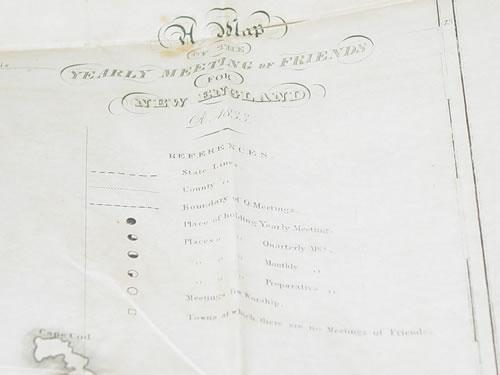 A Map
OF THE
YEARLY MEETING OF FRIENDS
FOR
NEW ENGLAND
1833
REFERENCES.
State Lines
County ,,
Boundary of Q. Meetings
Place of holding Yearly Meeting.
Places ,, ,, Quarterly Mgs.
,, ,, ,, Monthly ,,
,, ,, ,, Preparative ,,
Meetings for Worship.
Towns at which there are no Meetings of Friends.
Cape Cod